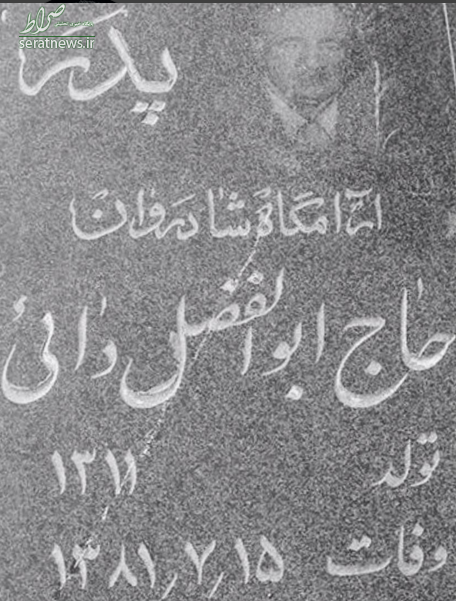 صراط
seratnews.ir
پدر
آرامگاه شادروان
حاج ابوالفضل دائی
تولد ۱۳۱۱
وفات ۱۳۸۱٫۷٫۱۵